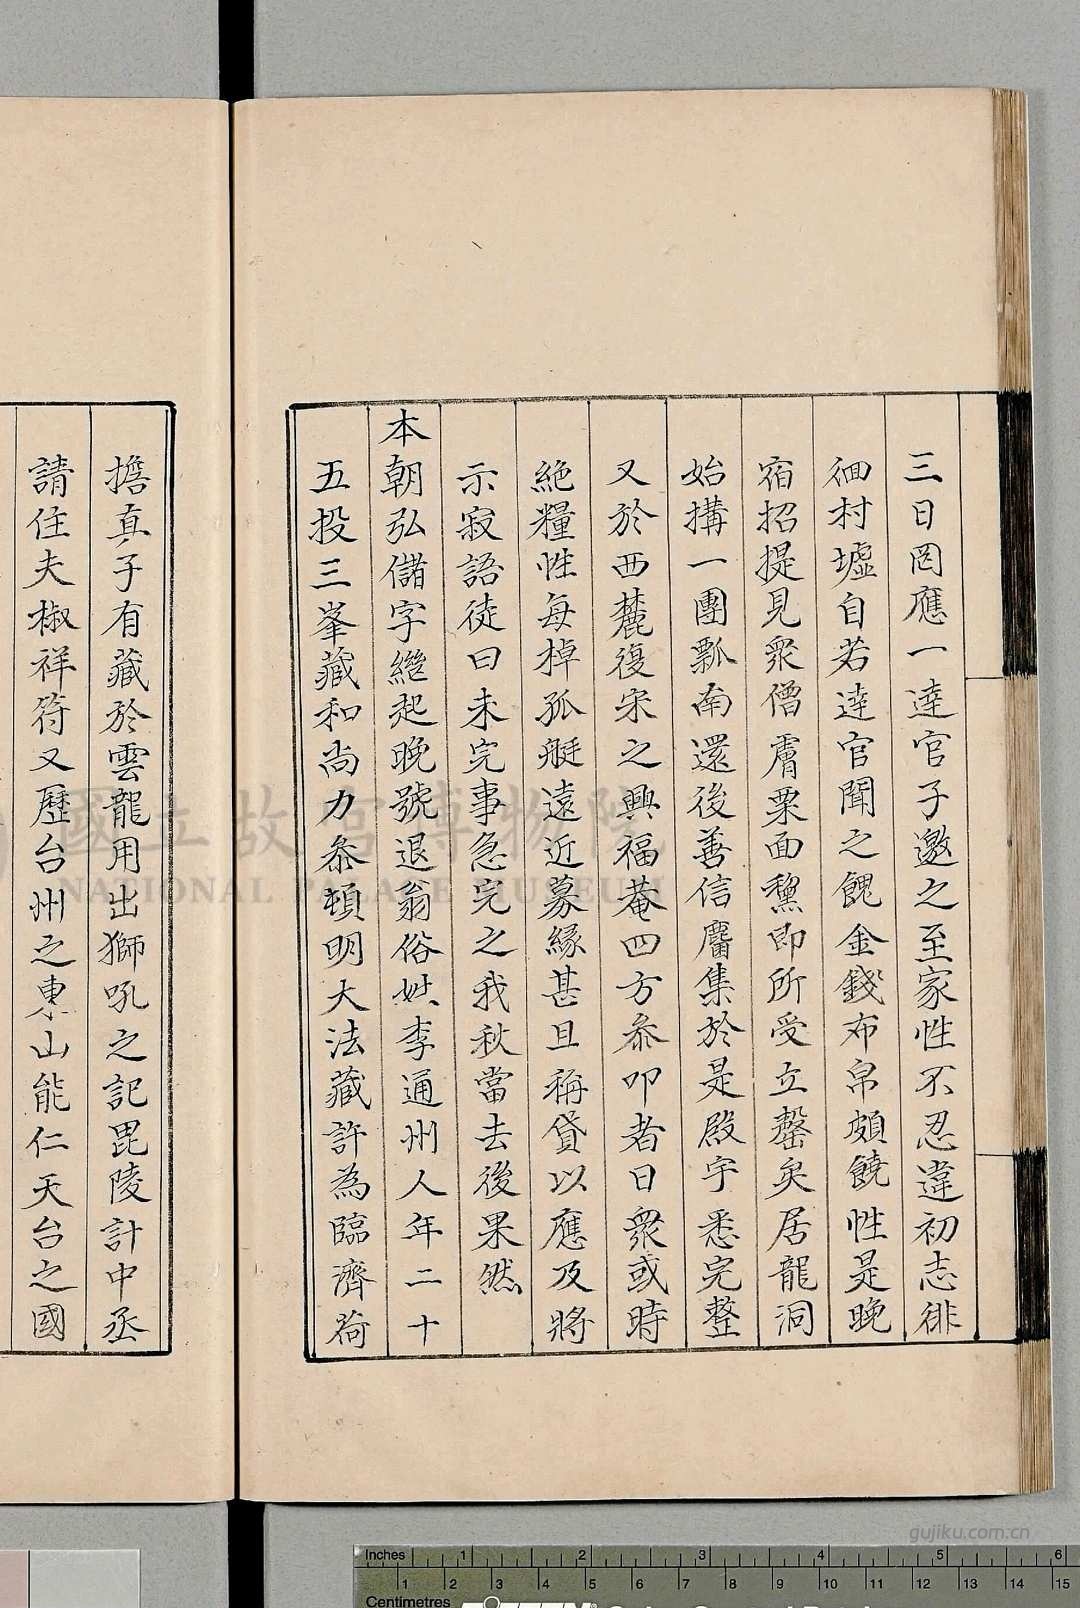 三日罔應一達官子邀之至家性不忍違初志徘
徊村墟自若達官聞之餽金錢布帛頗饒性是晚
宿招提見眾僧膚粟面黧即所受立罄矣居龍洞
始搆一團瓢南還後善信麕集於是殿宇悉完整
又於西麓復宋之興福菴四方叅叩者日眾或時
絶糧性每掉孤艇遠近募緣甚且稱貸以應及將
示寂語徒曰未完事急完之我秋當去後果然
本朝弘儲字繼起晚號退翁俗姓李通州人年二十
五投三峯藏和尚力叅頓明大法藏許為臨濟荷
擔真子有藏於雲龍用出獅吼之記毘陵計中丞
請住夫椒祥符又歷台州之東山能仁天台之國
國立故宮博物院
NATIONAL PALACE MUSEUM
gujiku.com.cn
Inches 1 2 3 4 5 6
1 2 3 4 5 6 7 8 9 10 11 12 13 14 15
Centimetres